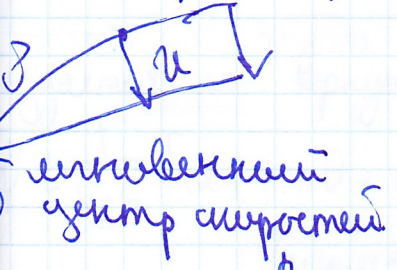 мгновенный
центр скоростей